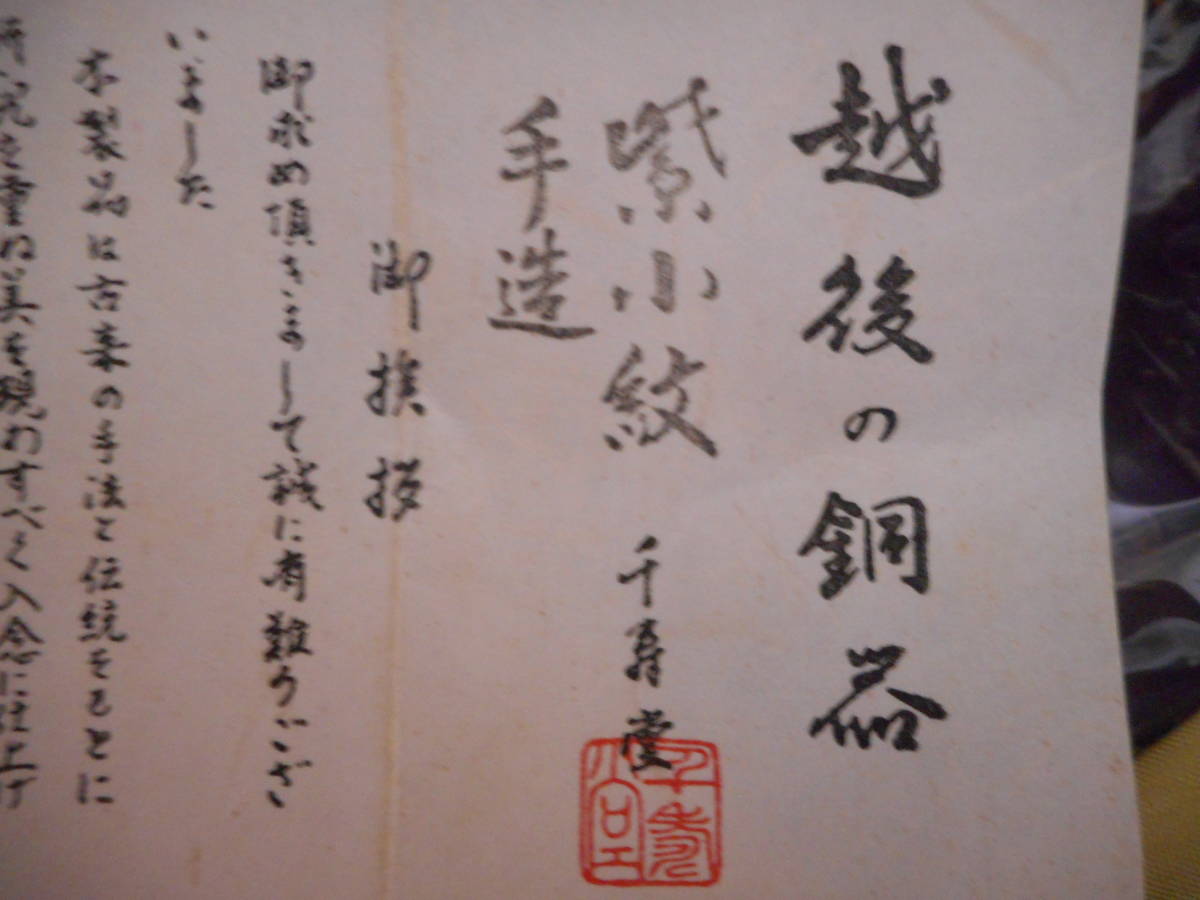 越後の銅器
紫小紋 千寿堂
手造
千寿堂
御挨拶
御求め頂きまして誠に有難うござ
いました
本製品は古来の手法と伝統をもとに
研究を重ね美を現わすべく入念に仕上げ